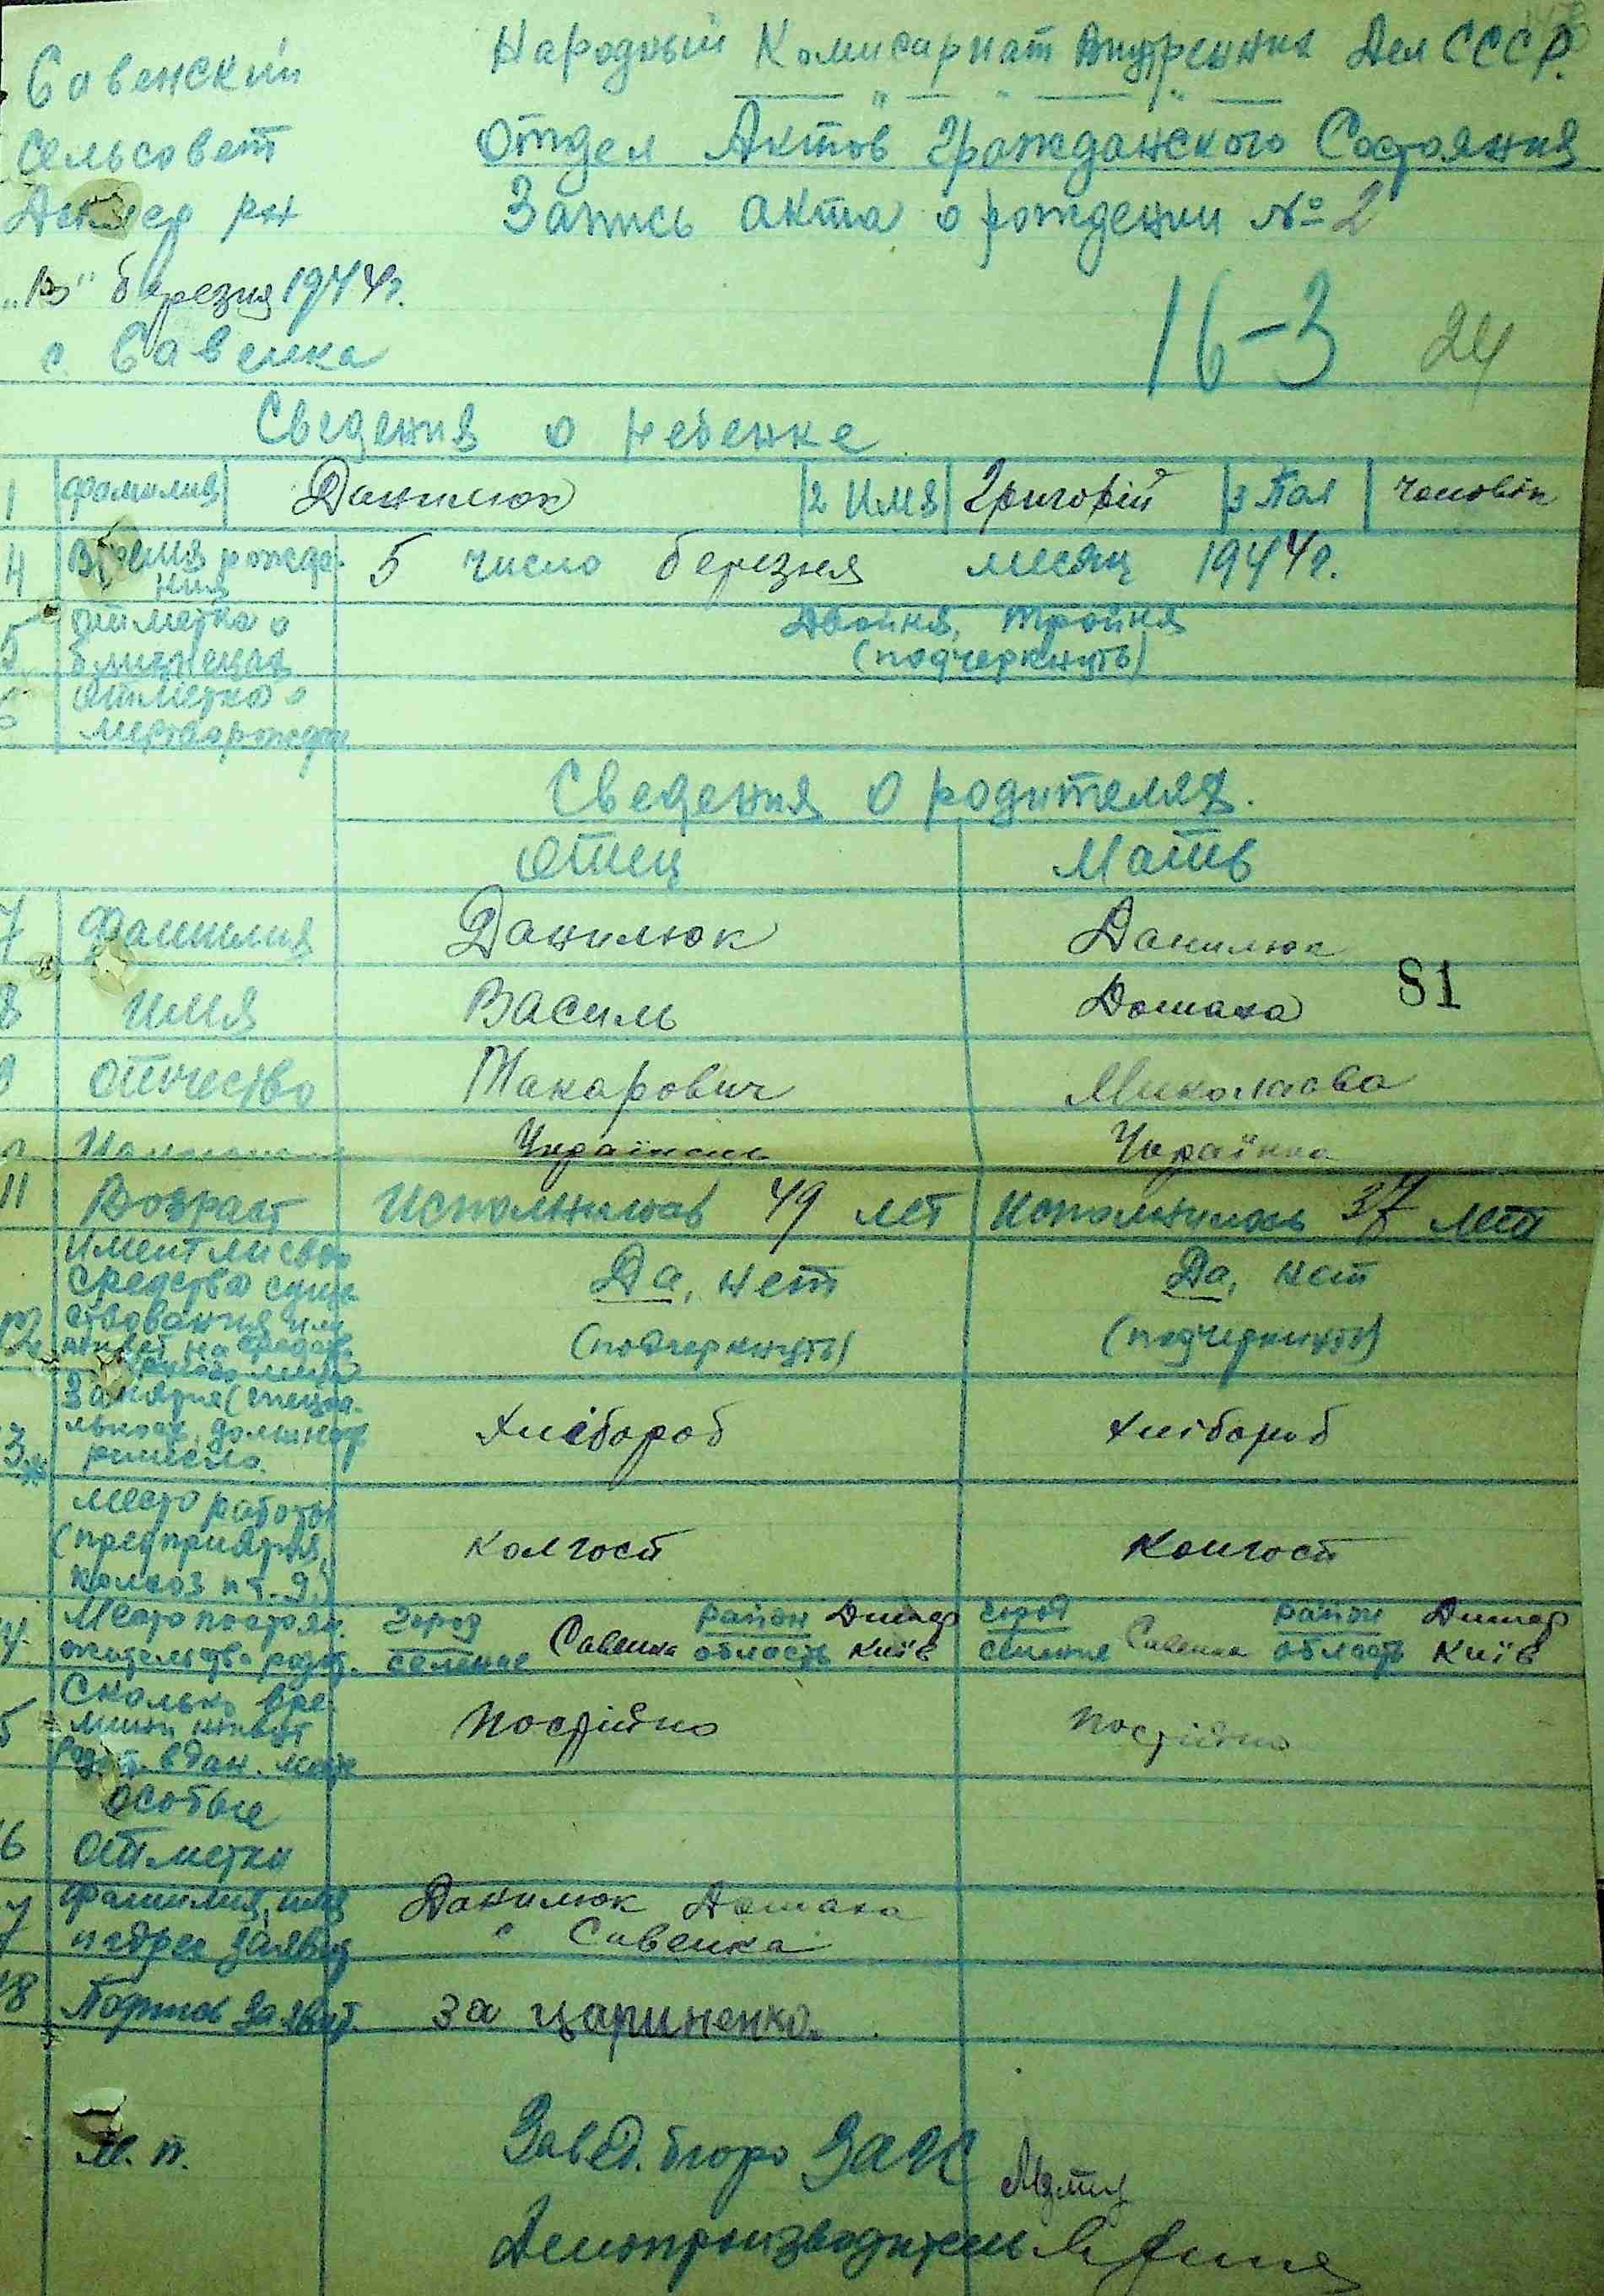 Савенский
Сельсовет
Димер рн
березня 1944г.
с. Савенка
Народный Комисариат Внутренних Дел СССР.
Отдел Актов Гражданского Состояния
Запись акта о рождении № 2
16-3 24
Сведения о ребенке
1 фамилия Данилюк 2 Имя Григорій 3 Пол Чоловік
4 Время рожде
ния 5 число березня месяц 1944г.
5 отметка о
близнецах Двойня, тройня
(подчеркнуть)
6 отметка о
мертворожден
Сведения о родителях.
Отец Мать
7 Фамилия Данилюк Данилюк
81
8 Имя Василь Домаха
9 Отчество Макарович Миколаєва
Українець Українка
11 Возраст Исполнилось 49 лет Исполнилось 37 лет
имеют ли свои
средства суще
ствования или
Да, нет Да, нет
(подчеркнуть) (подчеркнуть)
Занятия (специа-
льность, должность
ремесло.
Хлібороб Хлібороб
Место работы
(предприятия,
колхоз и т. д.)
Колгосп Колгосп
Место постоян.
жительства родит.
Город район Димер город район Димер
селение Савенка область Київ селение Савенка область Київ
Сколько вре
мени живут
родит. в дан. мест
Постійно Постійно
Особые
16 Отметки
Фамилия, имя Данилюк Домаха
и адрес заявит с Савенка
18 Подпись заявит. за цариненко.
М. п.
Завед. бюро ЗАГС
Делопроизводитель